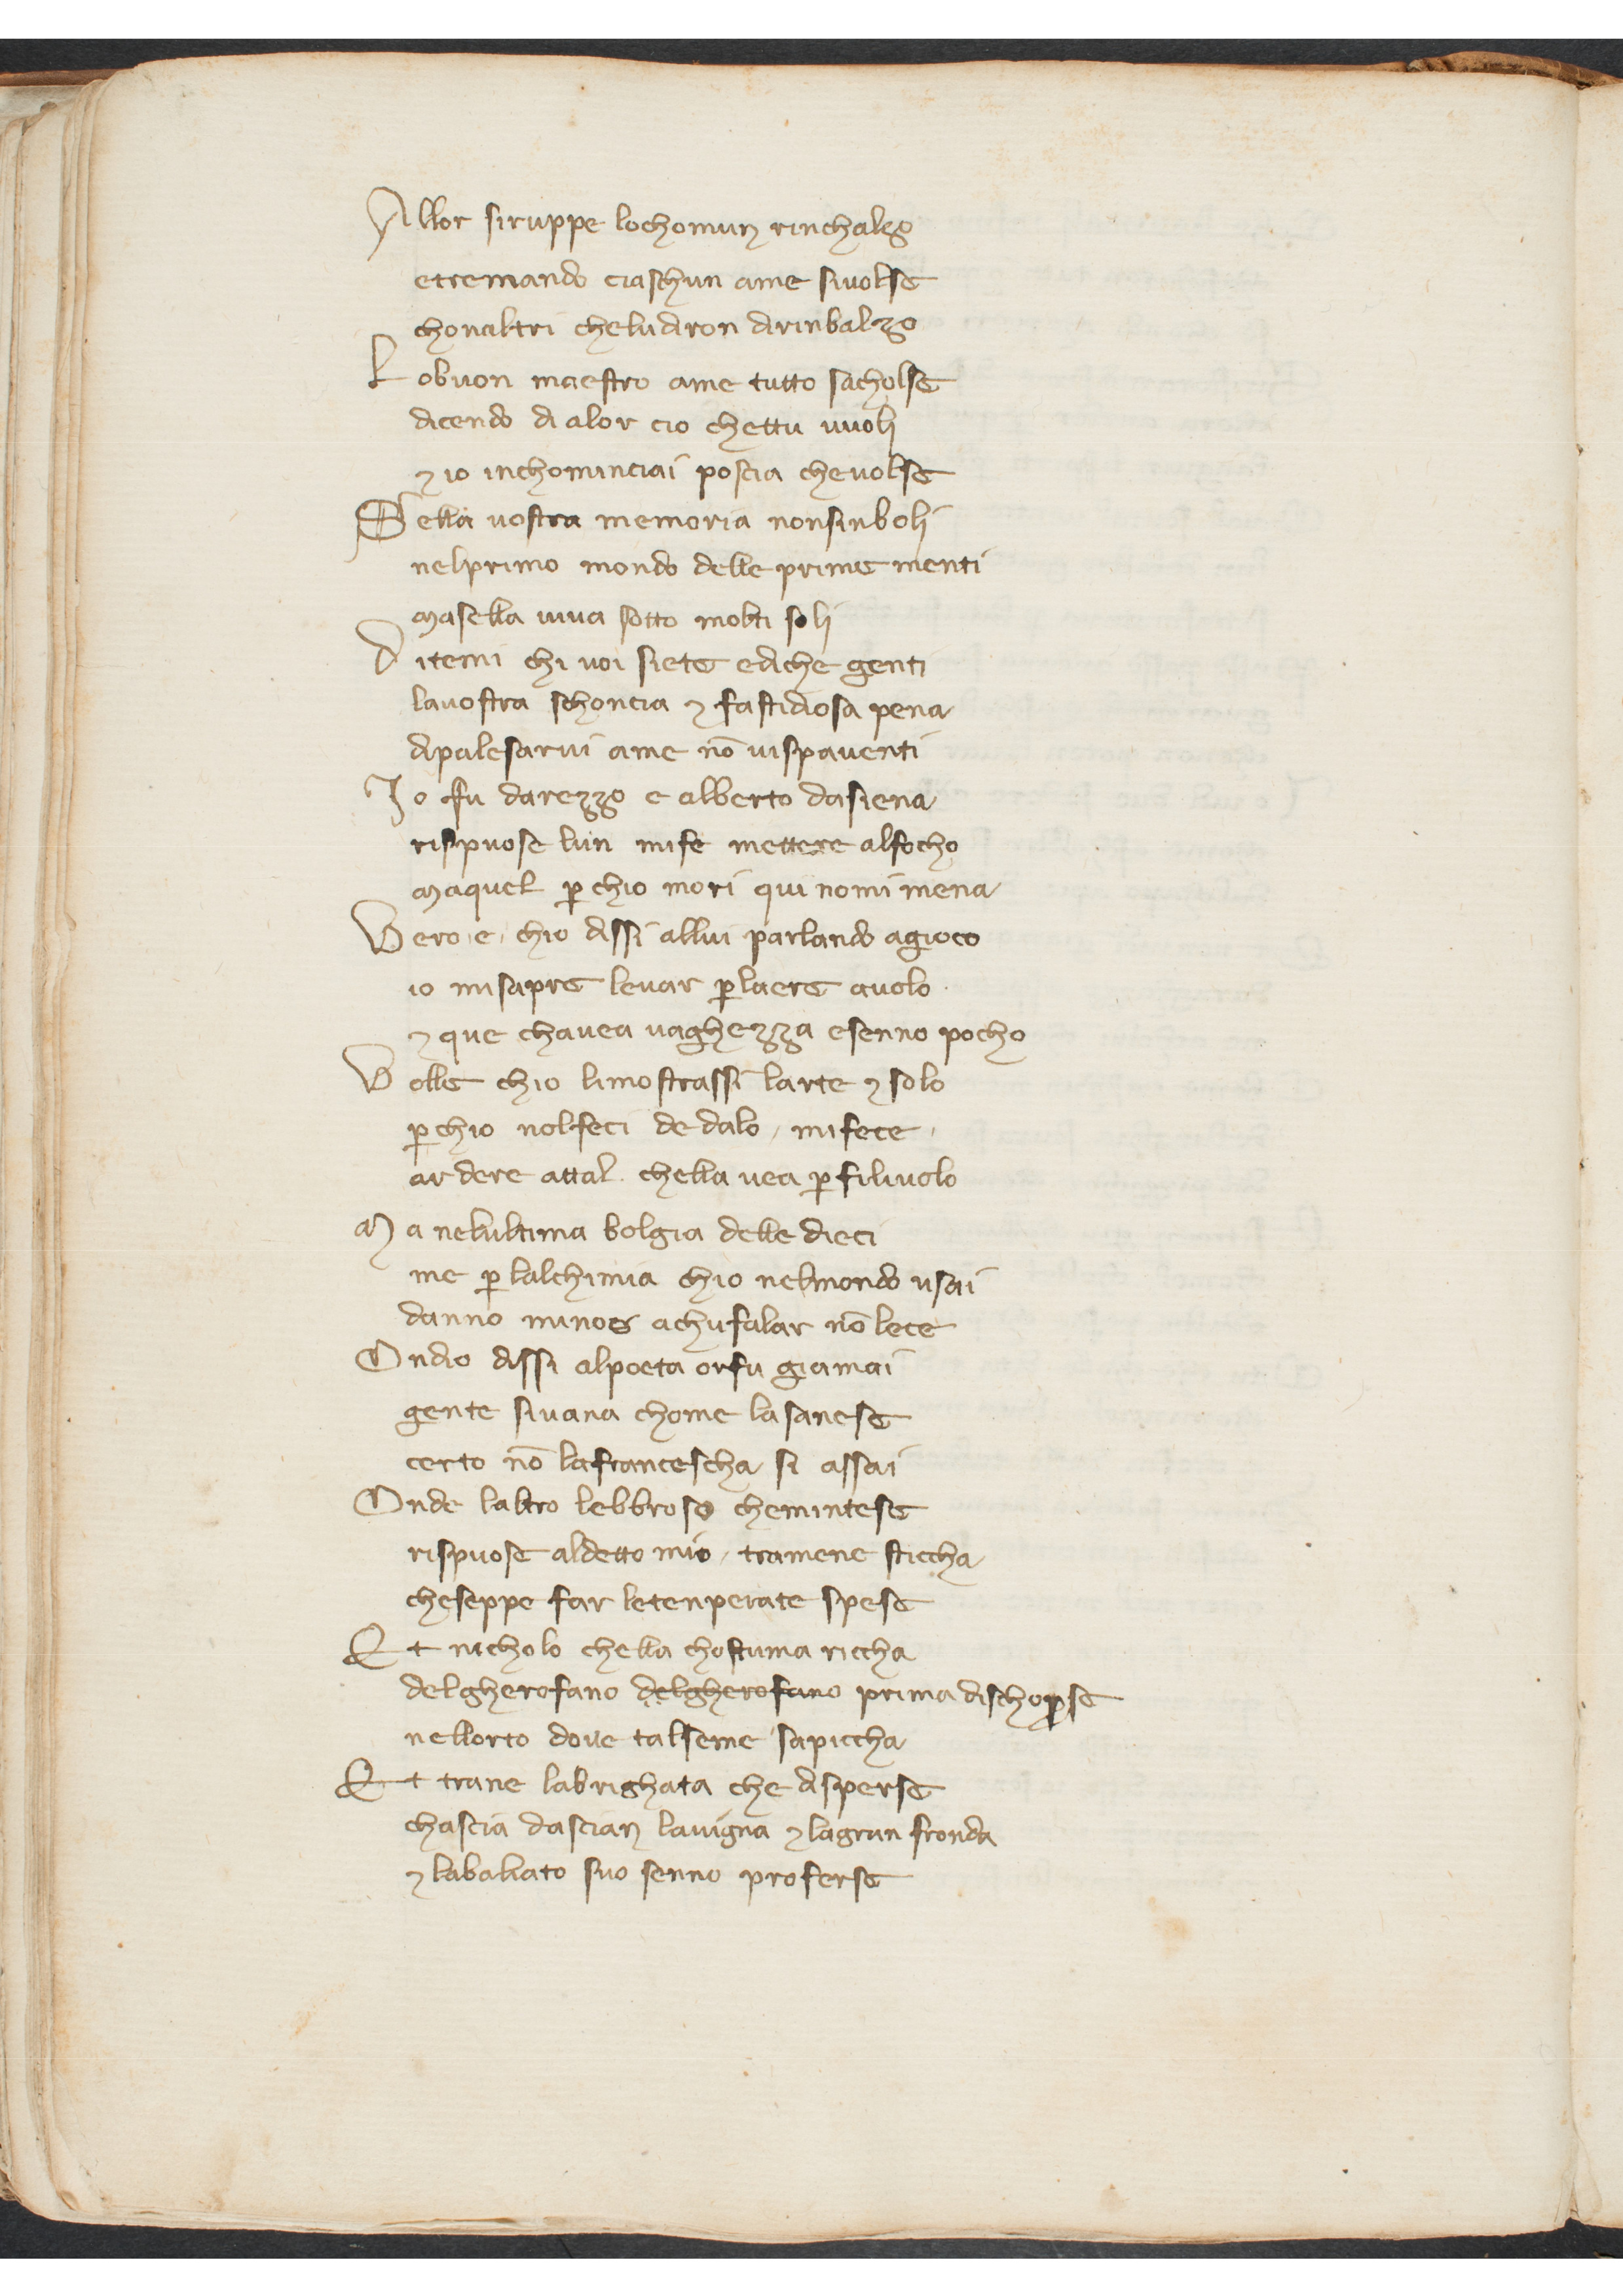 Allor siruppe lochomun rinchalço
etremando ciaschun ame sivolse
chonaltri cheludiron dirinbalzo
Lobuon maestro ame tutto sacholse
dicendo di alor cio chettu vuoli
⁊ io inchominciai poscia chevolse
Sella vostra memoria nonsinboli
nelprimo mondo delle prime menti
Masella viva sotto molti soli
Ditemi chi voi siete ediche genti
lavostra schoncia ⁊ fastidiosa pena
dipalesarvi ame nō vispaventi
Io fu darezzo e alberto dasiena
rispuose lun mife mettere alfocho
Maquel ꝑ chio mori qui nomi mena
Vero e chio dissi allui parlando agioco
io misapre levar ꝑlaere avolo
⁊ que chavea vaghezza esenno pocho
Volle chio limostrassi larte ⁊ solo
ꝑ chio nolfeci dedalo / mifece
ardere attal chella vea ꝑ filivolo
Ma nelultima bolgia delle dieci
me ꝑ lalchimia chio nelmondo usai
danno minos achufalar nō lece
Ondio dissi alpoeta orfu giamai
gente sivana chome lasanese
certo nō lafrancescha si assai
Onde laltro lebbroso chemintese
rispuose aldetto mio / tramene striccha
cheseppe far letenperate spese
Et nicholo chella chostuma riccha
delgherofano delgherofano prima dischoꝑse
nellorto dove talseme sapiccha
Et trane labrighata che disperse
chascia dascian lavigna ⁊ lagran fronda
⁊ labaliato suo senno proferse